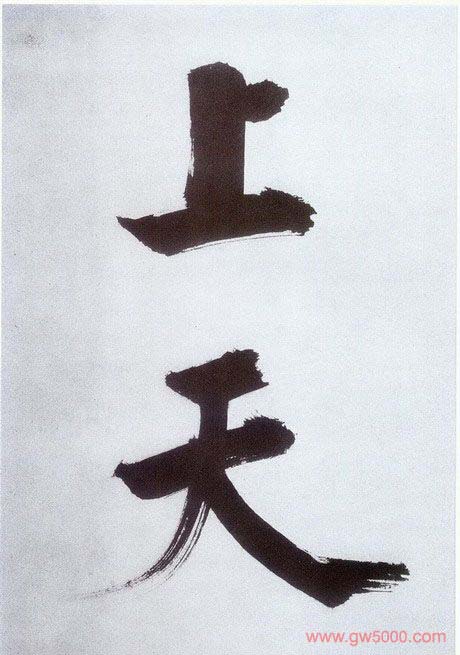 上
天
www.gw5000.com